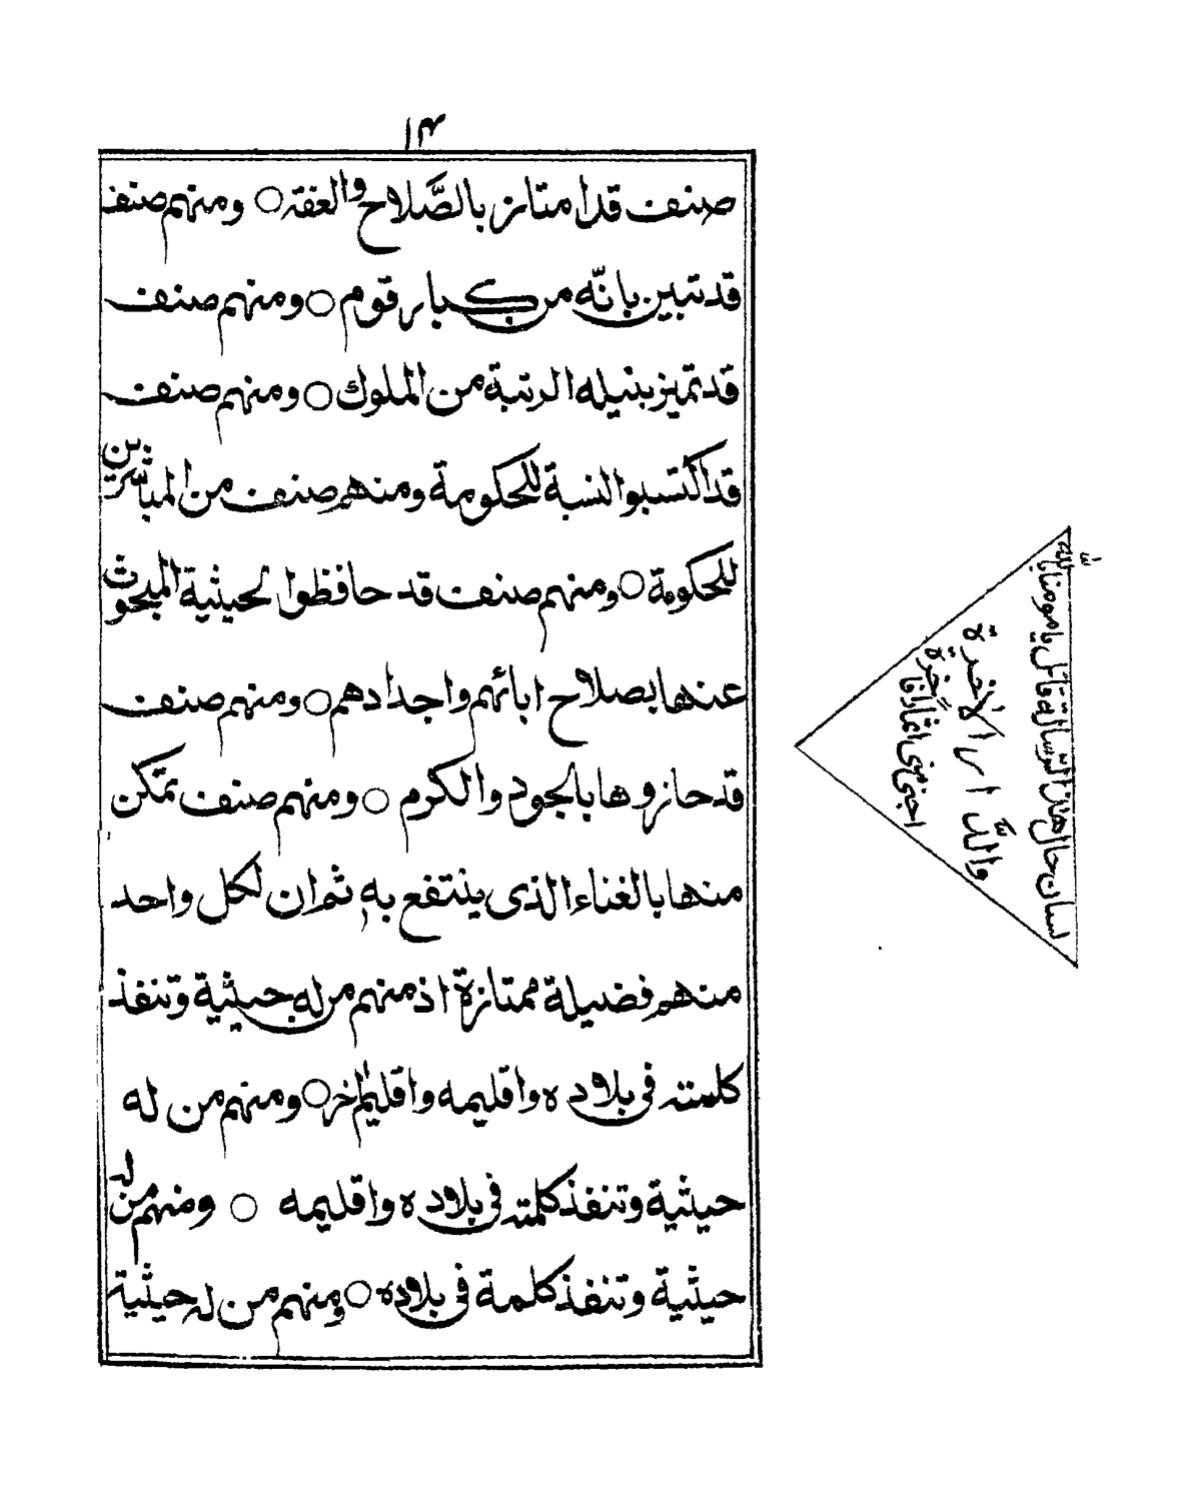 ١٣
صنف قد امتاز بالصَّلاح والفقه ○ ومنهم صنف
قد تبين بانّه من كبار قوم ○ ومنهم صنف
قد تميز بنيله الرتبة من الملوك ○ ومنهم صنف
قد اكتسبوا النسبة للحكومة ومنهم صنف من المباشرين
للحكومة ○ ومنهم صنف قد حافظوا لحيثية المبحوث
عنها بصلاح ابائهم واجدادهم ○ ومنهم صنف
قد حازوها بالجود والكرم ○ ومنهم صنف تمكن
منها بالغناء الذى ينتفع به ثم ان لكل واحد
منهم فضيلة ممتازة اذ منهم من له حيثية وتنفذ
كلمته فى بلاده واقليمه واقليم اٰخر ○ ومنهم من له
حيثية وتنفذ كلمته فى بلاده واقليمه ○ ومنهم من له
حيثية وتنفذ كلمة فى بلاده ○ ومنهم من له حيثية
لسان حال هذا الرسالة قائل يا مومنا بالله
والدَّار الاٰخرة
اجنى منى اثمارًا فاخرة